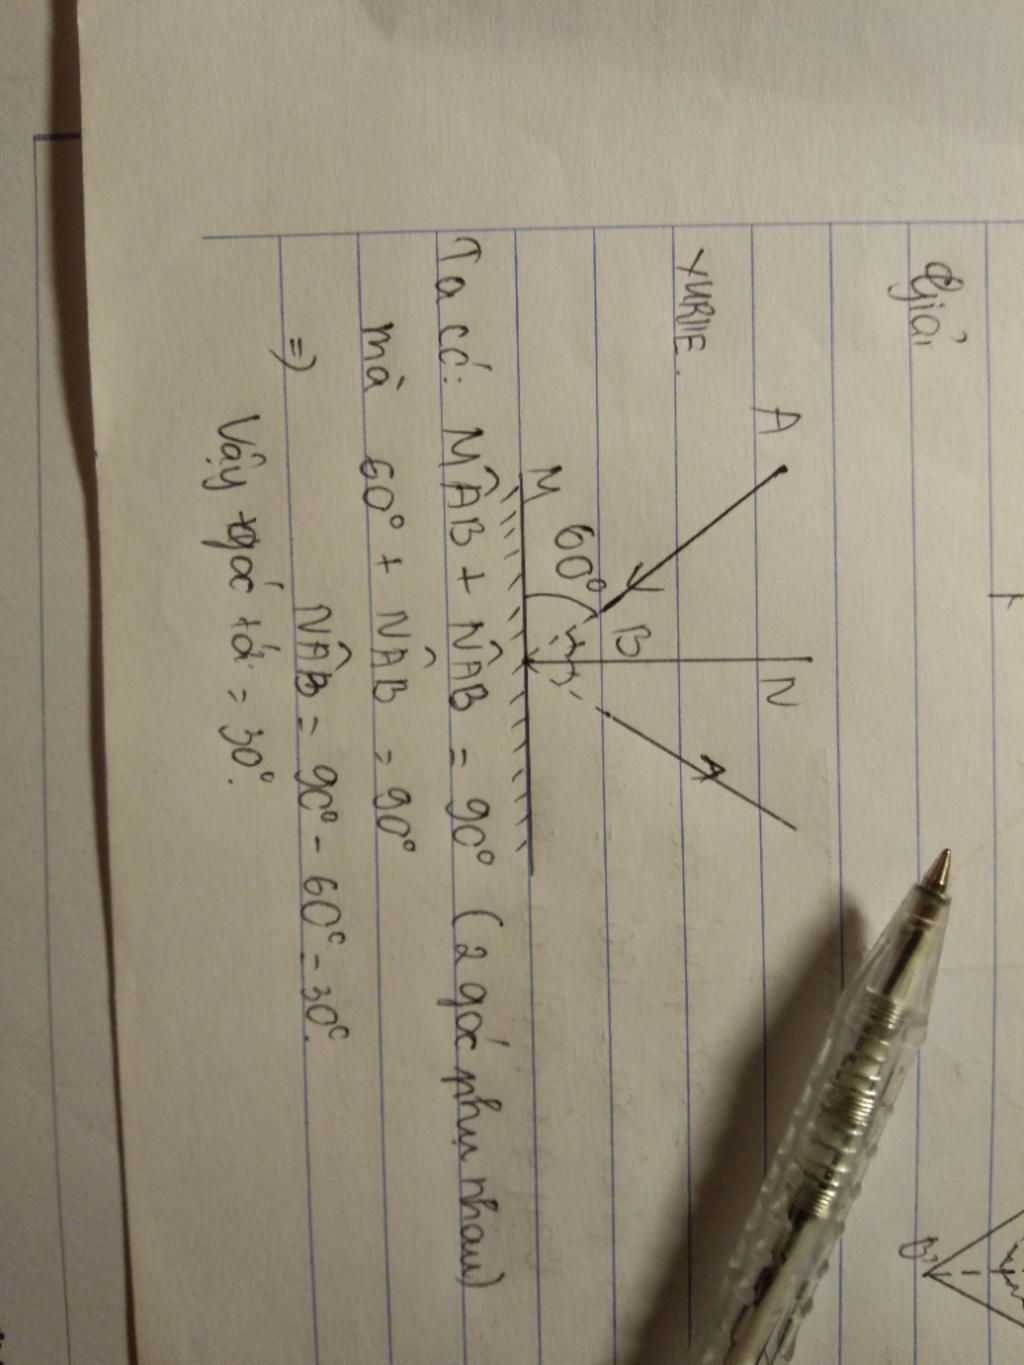 Giải
XURIIE.
A
N
B
60°
M
Ta có: MÂB + NÂB = 90° (2 góc phụ nhau)
mà 60° + NÂB = 90°
=) NÂB = 90° - 60° = 30°.
Vậy góc tới = 30°.